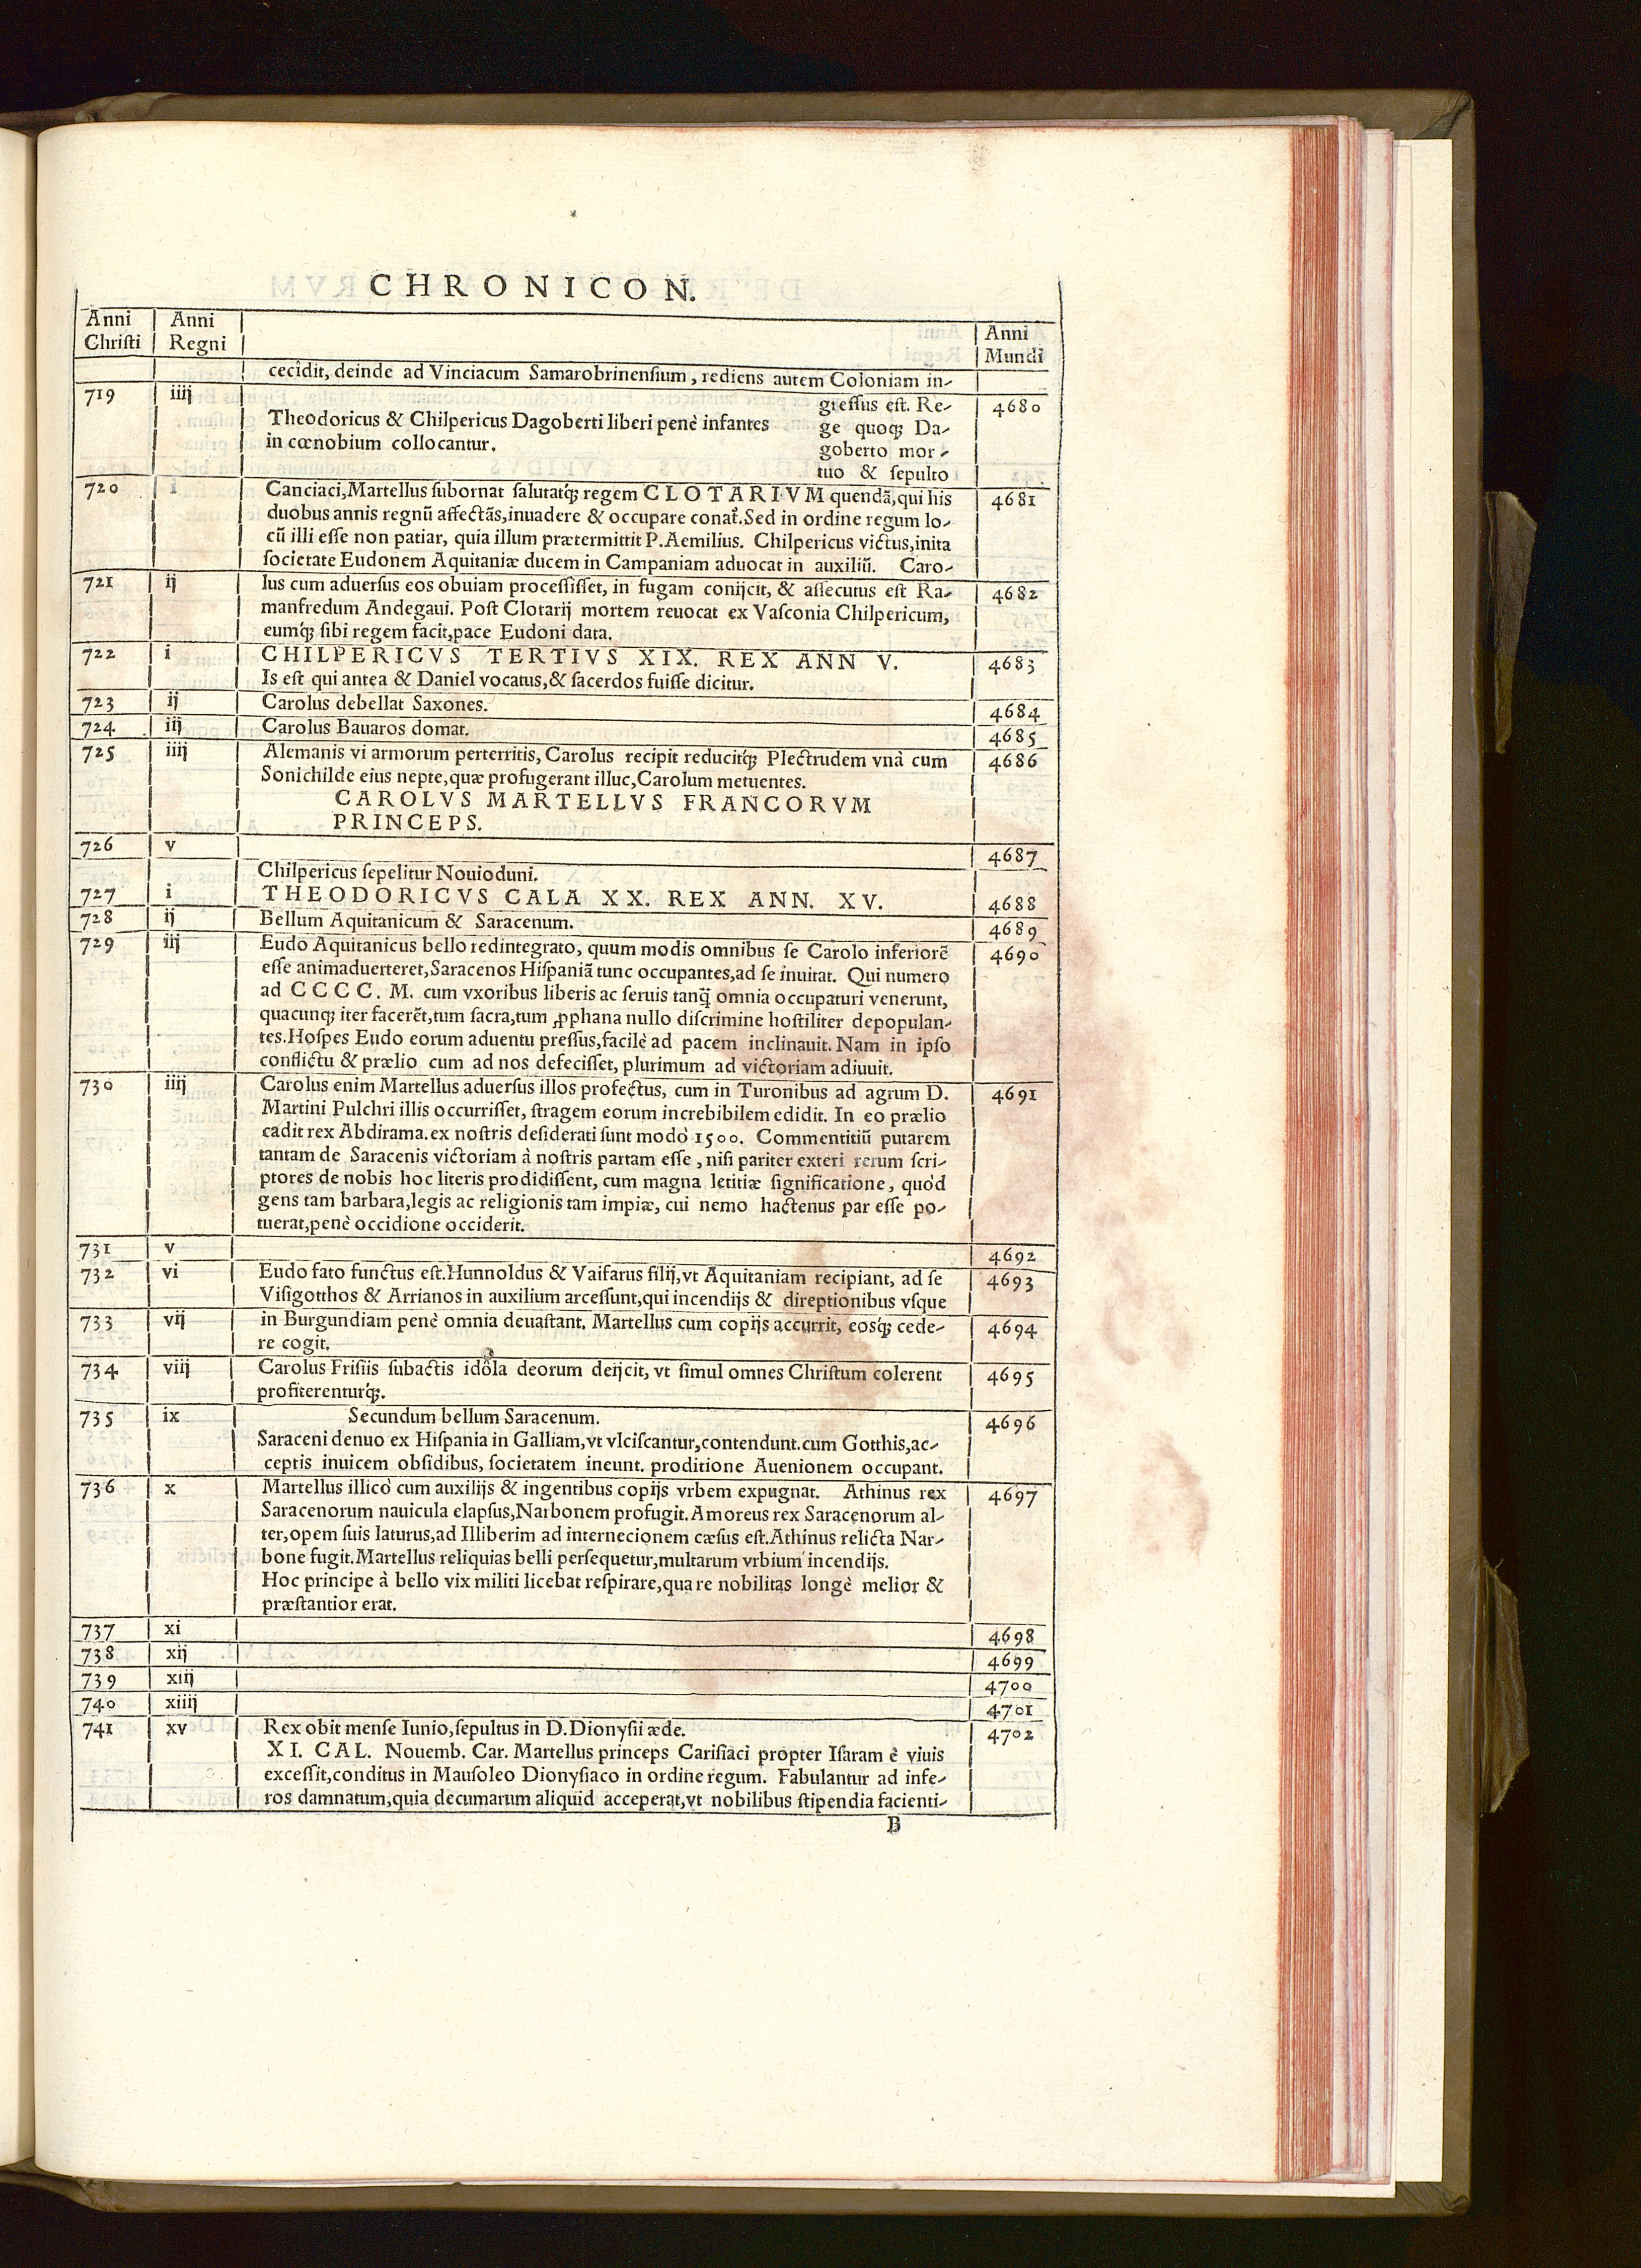 CHRONICON.
Anni Christi | Anni Regni | | Anni Mundi
cecîdit, deinde ad Vinciacum Samarobrinensium, rediens autem Coloniam in-
719 | iiij | gressus est. Re- | 4680
Theodoricus & Chilpericus Dagoberti liberi penè infantes ge quoq; Da-
in cœnobium collocantur. goberto mor-
tuo & sepulto
720 | i | Canciaci, Martellus subornat salutatq́; regem CLOTARIVM quendã, qui his | 4681
duobus annis regnũ affectãs, inuadere & occupare conat̃. Sed in ordine regum lo-
cũ illi esse non patiar, quia illum prætermittit P. Aemilius. Chilpericus victus, inita
societate Eudonem Aquitaniæ ducem in Campaniam aduocat in auxiliũ. Caro-
721 | ij | lus cum aduersus eos obuiam processisset, in fugam conijcit, & assecutus est Ra- | 4682
manfredum Andegaui. Post Clotarij mortem reuocat ex Vasconia Chilpericum,
eumq́; sibi regem facit, pace Eudoni data.
722 | i | CHILPERICVS TERTIVS XIX. REX ANN V. | 4683
Is est qui antea & Daniel vocatus, & sacerdos fuisse dicitur.
723 | ij | Carolus debellat Saxones. | 4684
724 | iij | Carolus Bauaros domat. | 4685
725 | iiij | Alemanis vi armorum perterritis, Carolus recipit reducitq́; Plectrudem vnà cum | 4686
Sonichilde eius nepte, quæ profugerant illuc, Carolum metuentes.
CAROLVS MARTELLVS FRANCORVM
PRINCEPS.
726 | v | | 4687
Chilpericus sepelitur Nouioduni.
727 | i | THEODORICVS CALA XX. REX ANN. XV. | 4688
728 | ij | Bellum Aquitanicum & Saracenum. | 4689
729 | iij | Eudo Aquitanicus bello redintegrato, quum modis omnibus se Carolo inferiorẽ | 4690
esse animaduerteret, Saracenos Hispaniã tunc occupantes, ad se inuitat. Qui numero
ad CCCC. M. cum vxoribus liberis ac seruis tanq̃ omnia occupaturi venerunt,
quacunq; iter facerẽt, tum sacra, tum ꝓphana nullo discrimine hostiliter depopulan-
tes. Hospes Eudo eorum aduentu pressus, facilè ad pacem inclinauit. Nam in ipso
conflictu & prælio cum ad nos defecisset, plurimum ad victoriam adiuuit.
730 | iiij | Carolus enim Martellus aduersus illos profectus, cum in Turonibus ad agrum D. | 4691
Martini Pulchri illis occurrisset, stragem eorum increbibilem edidit. In eo prælio
cadit rex Abdirama. ex nostris desiderati sunt modò 1500. Commentitiũ putarem
tantam de Saracenis victoriam à nostris partam esse, nisi pariter exteri rerum scri-
ptores de nobis hoc literis prodidissent, cum magna letitiæ significatione, quòd
gens tam barbara, legis ac religionis tam impiæ, cui nemo hactenus par esse po-
tuerat, penè occidione occiderit.
731 | v | | 4692
732 | vi | Eudo fato functus est. Hunnoldus & Vaifarus filij, vt Aquitaniam recipiant, ad se | 4693
Visigotthos & Arrianos in auxilium arcessunt, qui incendijs & direptionibus vsque
733 | vij | in Burgundiam penè omnia deuastant. Martellus cum copijs accurrit, eosq́; cede- | 4694
re cogit.
734 | viij | Carolus Frisiis subactis idôla deorum deijcit, vt simul omnes Christum colerent | 4695
profiterenturq́;.
735 | ix | Secundum bellum Saracenum. | 4696
Saraceni denuo ex Hispania in Galliam, vt vlciscantur, contendunt. cum Gotthis, ac-
ceptis inuicem obsidibus, societatem ineunt. proditione Auenionem occupant.
736 | x | Martellus illicò cum auxilijs & ingentibus copijs vrbem expugnat. Athinus rex | 4697
Saracenorum nauicula elapsus, Narbonem profugit. Amoreus rex Saracenorum al-
ter, opem suis laturus, ad Illiberim ad internecionem cæsus est. Athinus relicta Nar-
bone fugit. Martellus reliquias belli persequetur, multarum vrbium incendijs.
Hoc principe à bello vix militi licebat respirare, quare nobilitas longè melior &
præstantior erat.
737 | xi | | 4698
738 | xij | | 4699
739 | xiij | | 4700
740 | xiiij | | 4701
741 | xv | Rex obit mense Iunio, sepultus in D. Dionysii æde. | 4702
XI. CAL. Nouemb. Car. Martellus princeps Carisiaci propter Isaram è viuis
excessit, conditus in Mausoleo Dionysiaco in ordine regum. Fabulantur ad infe-
ros damnatum, quia decumarum aliquid acceperat, vt nobilibus stipendia facienti-
B